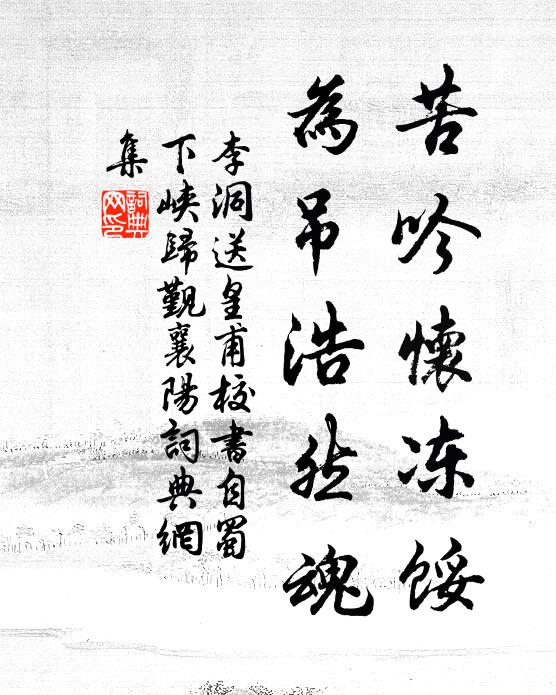 苦吟懷冻餒
為吊浩然魂
李洞送皇甫校書自蜀
下峽歸覲襄陽詞典網
集
詞典
网印